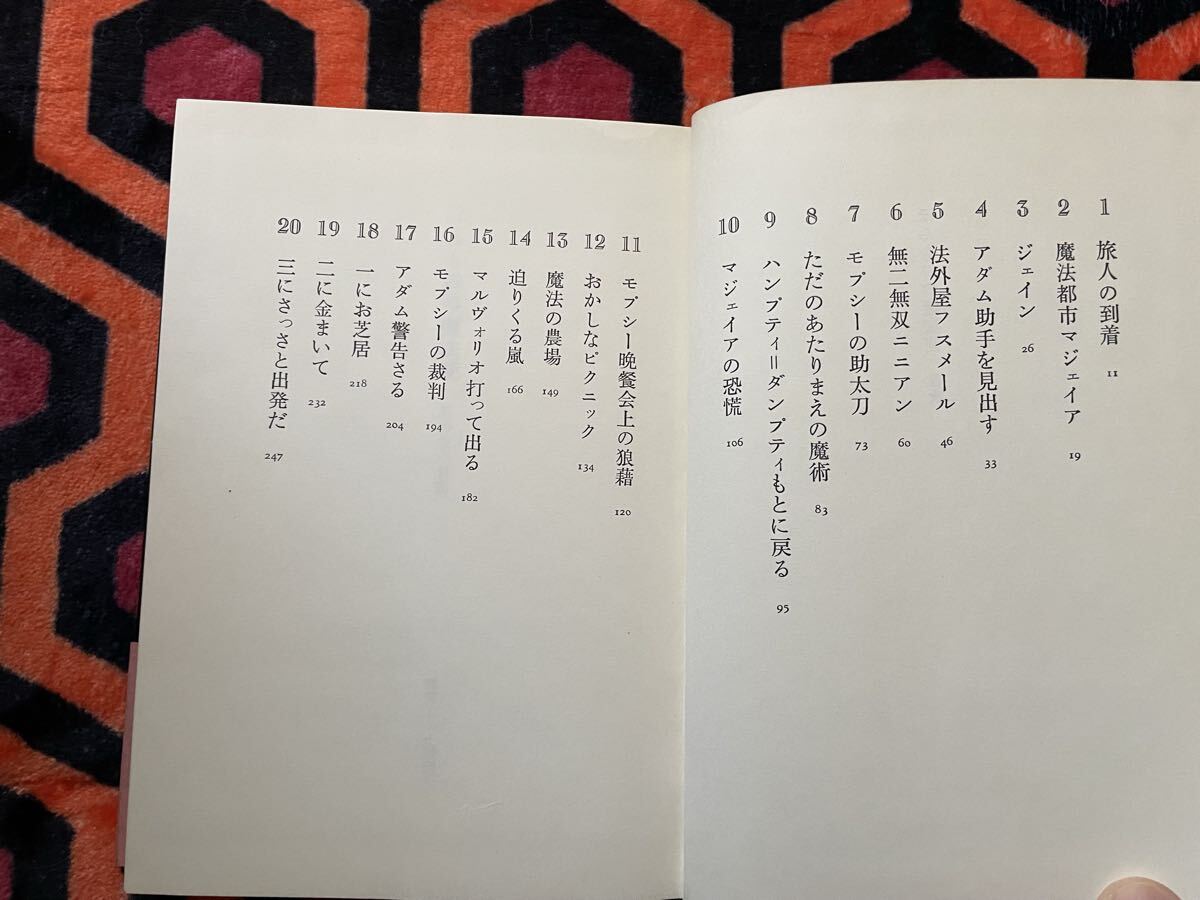 1 旅人の到着 11
2 魔法都市マジェイア 19
3 ジェイン 26
4 アダム助手を見出す 33
5 法外屋フスメール 46
6 無二無双ニニアン 60
7 モプシーの助太刀 73
8 ただのあたりまえの魔術 83
9 ハンプティ＝ダンプティもとに戻る 95
10 マジェイアの恐慌 106
11 モプシー晩餐会上の狼藉 120
12 おかしなピクニック 134
13 魔法の農場 149
14 迫りくる嵐 166
15 マルヴォリオ打って出る 182
16 モプシーの裁判 194
17 アダム警告さる 204
18 一にお芝居 218
19 二に金まいて 232
20 三にさっさと出発だ 247